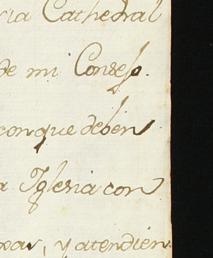 ria Cathedral
de mi Consejo.
conque deben
a Iglesia con
, y atendien